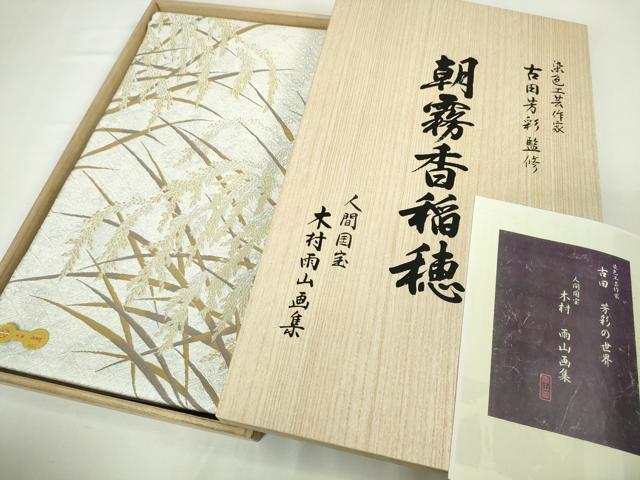 染色工芸作家
古田芳彩監修
朝霧香稲穂
人間国宝
木村雨山画集
染色工芸作家
古田 芳彩の世界
人間国宝
木村 雨山画集